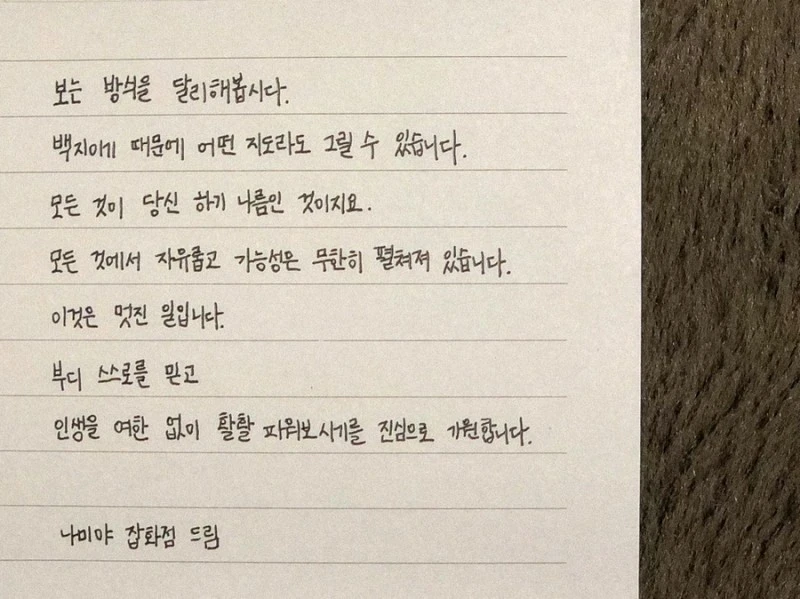 보는 방식을 달리해봅시다.
백지이기 때문에 어떤 지도라도 그릴 수 있습니다.
모든 것이 당신 하기 나름인 것이지요.
모든 것에서 자유롭고 가능성은 무한히 펼쳐져 있습니다.
이것은 멋진 일입니다.
부디 스스로를 믿고
인생을 여한 없이 활활 피워보시기를 진심으로 기원합니다.
나미야 잡화점 드림